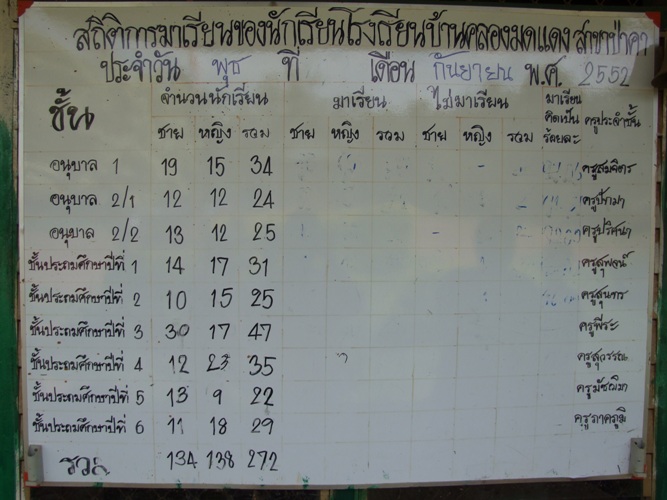 สถิติการมาเรียนของนักเรียนโรงเรียนบ้านคลองมดแดง สาขาป่าคา
ประจำวัน พุธ ที่ เดือน กันยายน พ.ศ. 2552
ชั้น จำนวนนักเรียน มาเรียน ไม่มาเรียน มาเรียนคิดเป็นร้อยละ ครูประจำชั้น
ชาย หญิง รวม ชาย หญิง รวม ชาย หญิง รวม
อนุบาล 1 19 15 34 ครูสมจิตร
อนุบาล 2/1 12 12 24
อนุบาล 2/2 13 12 25 ครูปริศนา
ชั้นประถมศึกษาปีที่ 1 14 17 31 ครูสุพจน์
ชั้นประถมศึกษาปีที่ 2 10 15 25 ครูสุนทร
ชั้นประถมศึกษาปีที่ 3 30 17 47 ครูพีระ
ชั้นประถมศึกษาปีที่ 4 12 23 35 ครูสุวรรณ
ชั้นประถมศึกษาปีที่ 5 13 9 22 ครูมัชฌิมา
ชั้นประถมศึกษาปีที่ 6 11 18 29 ครูภาคภูมิ
รวม 134 138 272